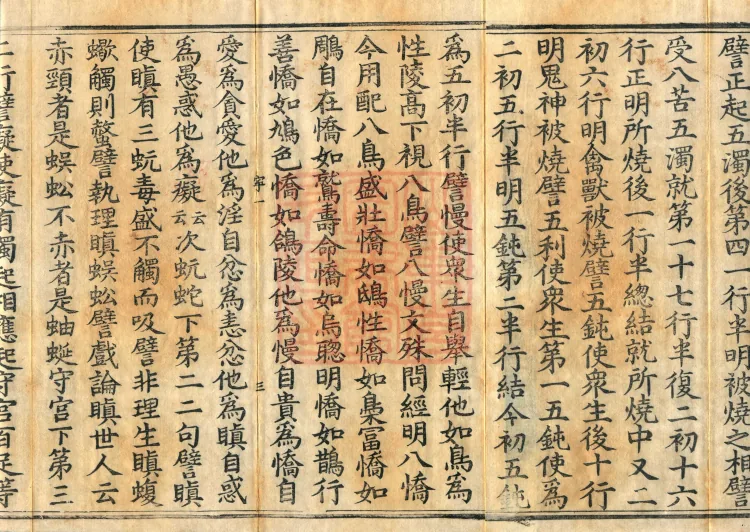 譬正起五濁後第四一行半明被燒之相譬
受八苦五濁就第一十七行半復二初十六
行正明所燒後一行半總結就所燒中又二
初六行明禽獸被燒譬五鈍使衆生後十行
明鬼神被燒譬五利使衆生第一五鈍使爲
二初五行半明五鈍第二半行結今初五鈍
爲五初半行譬慢使衆生自舉輕他如鳥爲
性陵高下視八鳥譬八慢文殊問經明八憍
今用配八鳥盛壯憍如鴟性憍如梟富憍如
鵰自在憍如鷲壽命憍如烏聦明憍如鵲行
善憍如鳩色憍如鴿陵他爲慢自貴爲憍自
牢一 三
愛爲貪愛他爲淫自忿爲恚忿他爲瞋自惑
爲愚惑他爲癡云云次蚖蛇下第二二句譬瞋
使瞋有三蚖毒盛不觸而吸譬非理生瞋蝮
蠍觸則螫譬執理瞋蜈蚣譬戲論瞋世人云
赤頸者是蜈蚣不赤者是蚰蜒守宮下第三
二行譬癡使癡有獨起相應起守宮百足等